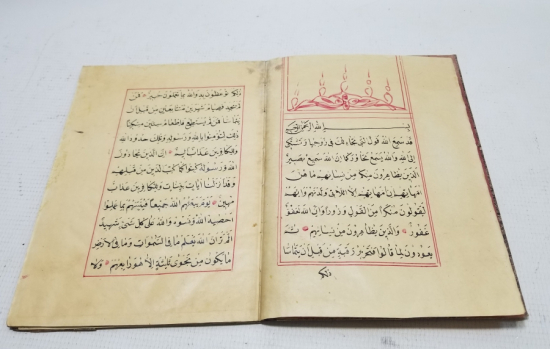 بسم الله الرحمن الرحيم
قد سمع الله قول التي تجادلك في زوجها وتشتكي
الى الله والله يسمع تحاوركما ان الله سميع بصير
الذين يظاهرون منكم من نسائهم ما هن
امهاتهم ان امهاتهم الا اللائي ولدنهم وانهم
ليقولون منكرا من القول وزورا وان الله لعفو
غفور والذين يظاهرون من نسائهم ثم
يعودون لما قالوا فتحرير رقبة من قبل ان يتماسا
ذلكم
ذلكم توعظون به والله بما تعملون خبير فمن
لم يجد فصيام شهرين متتابعين من قبل ان
يتماسا فمن لم يستطع فاطعام ستين مسكينا
ذلك لتؤمنوا بالله ورسوله وتلك حدود الله
وللكافرين عذاب اليم ان الذين يحادون
الله ورسوله كبتوا كما كبت الذين من قبلهم
وقد انزلنا ايات بينات وللكافرين عذاب
مهين يوم يبعثهم الله جميعا فينبئهم بما عملوا
احصيه الله ونسوه والله على كل شيء شهيد
الم تر ان الله يعلم ما في السموات وما في الارض
ما يكون من نجوى ثلثة الا هو رابعهم ولا